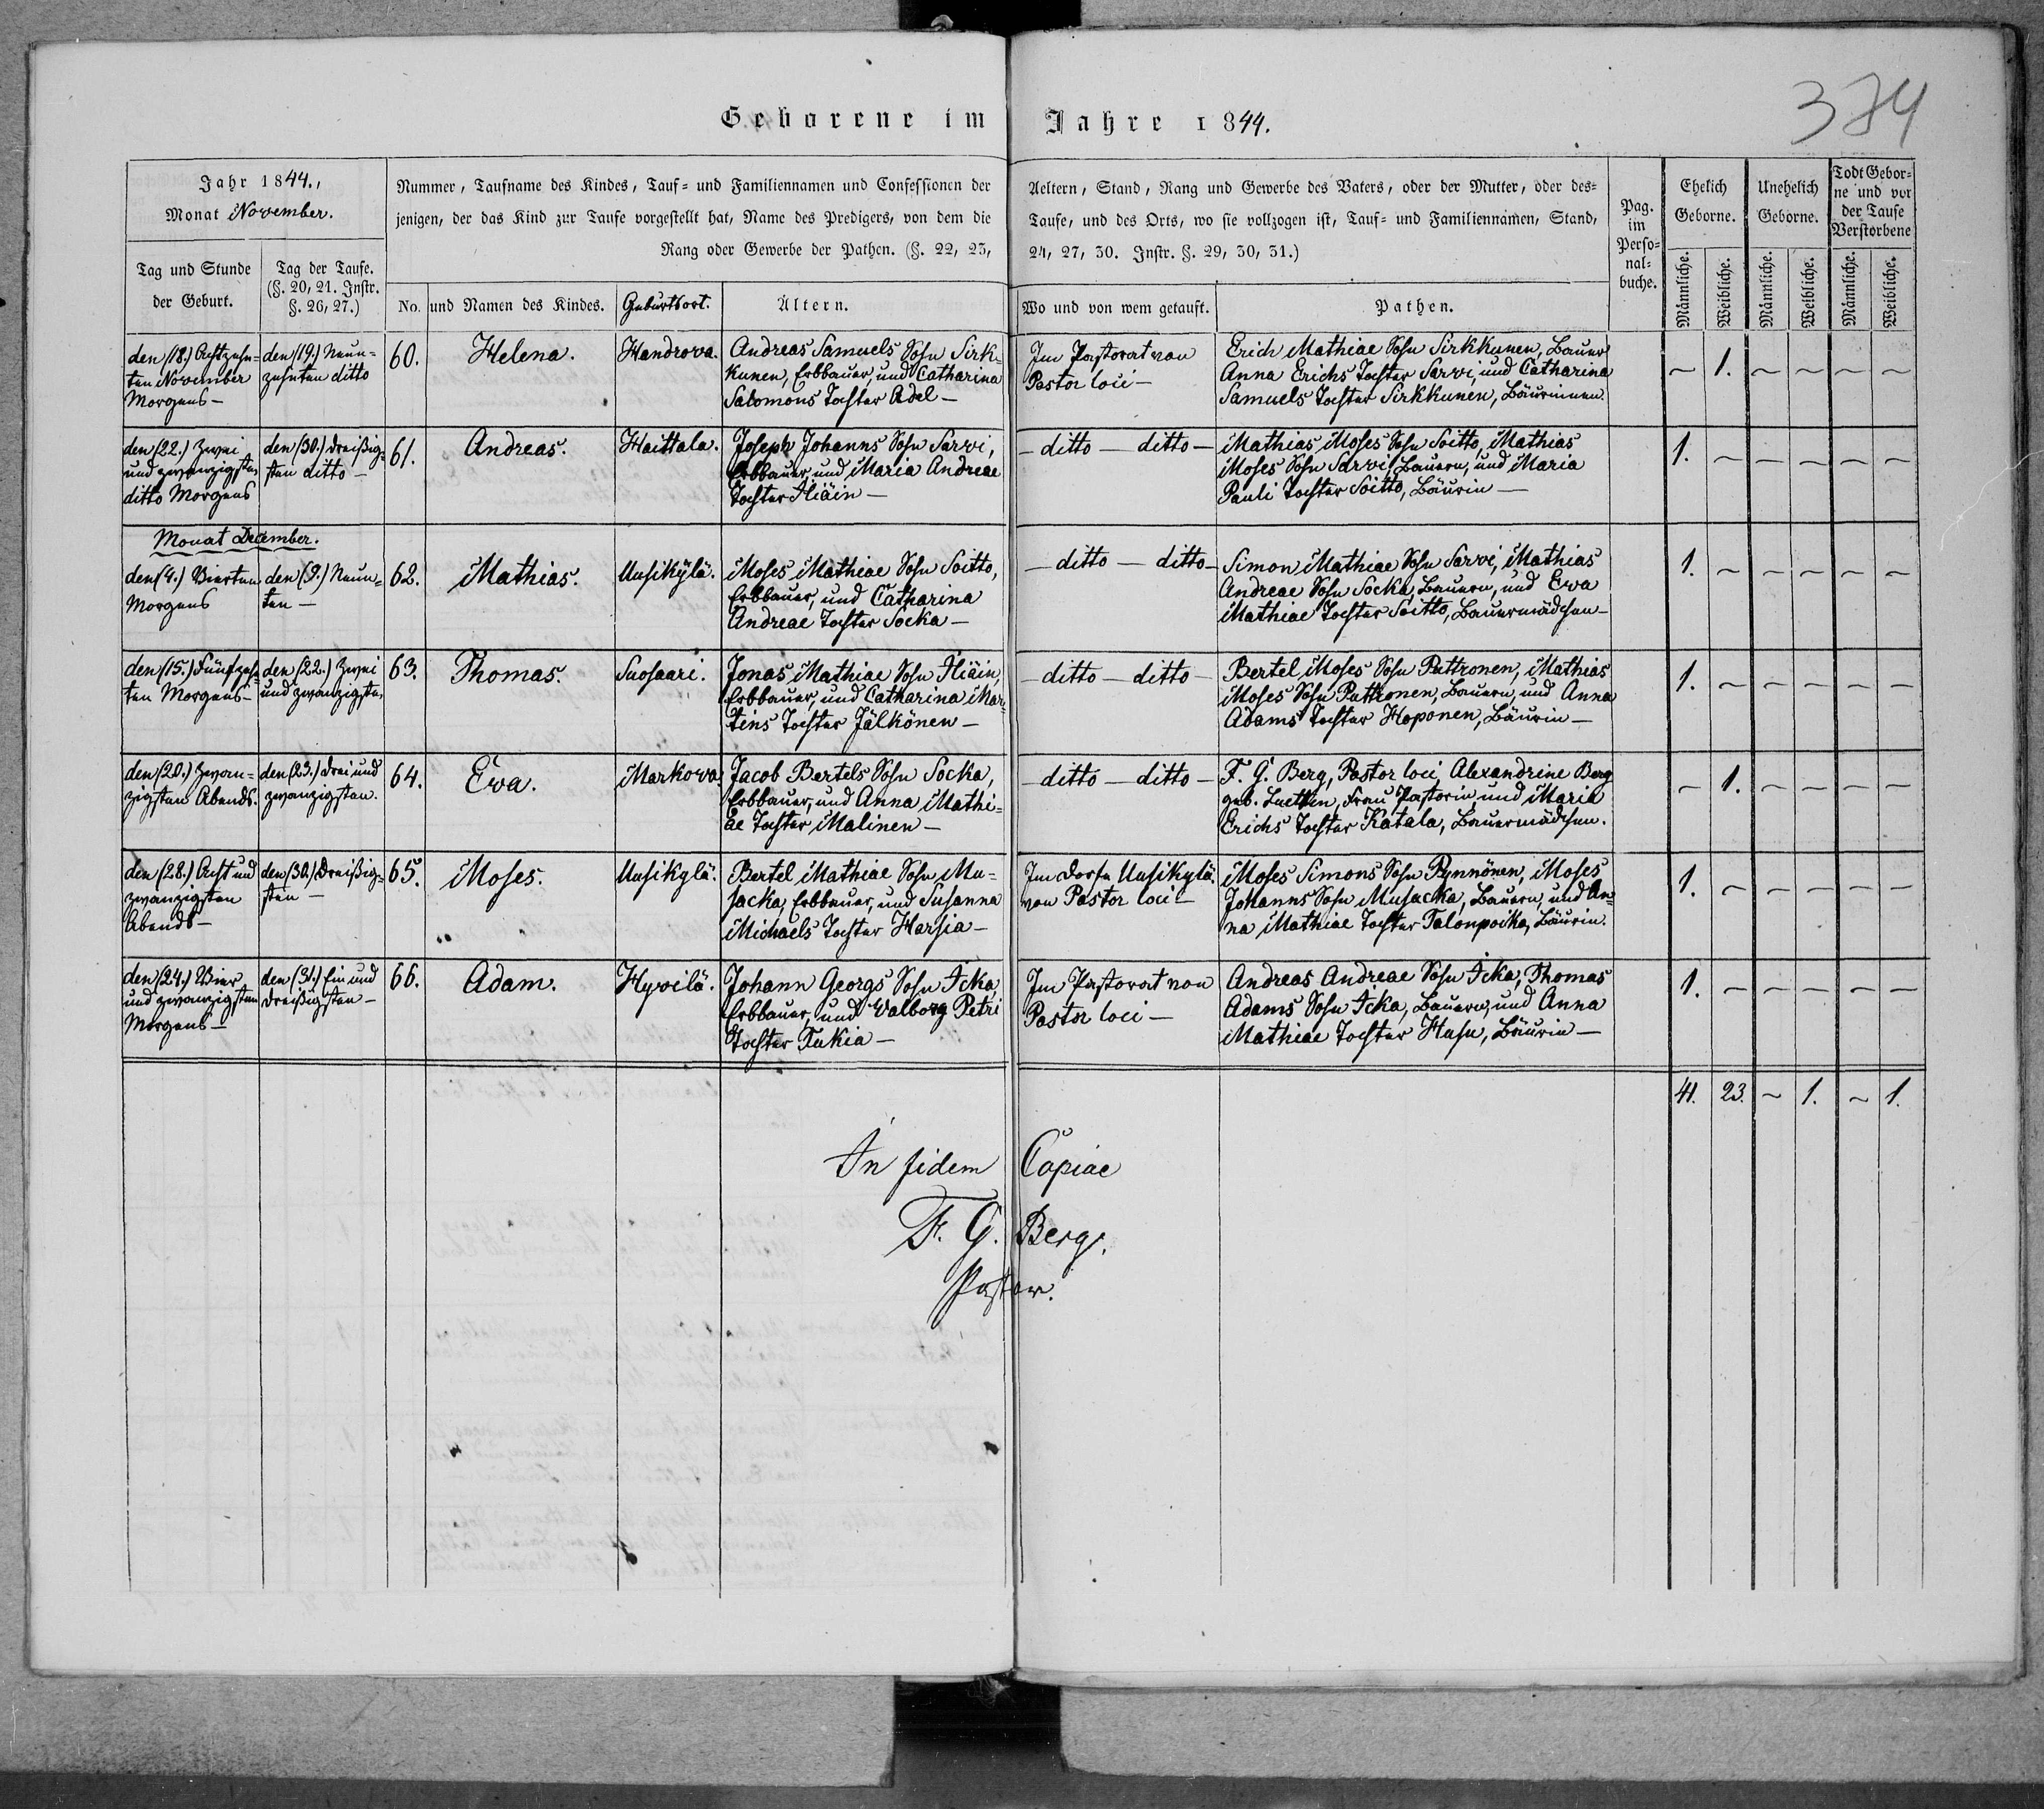 374
Geborene im Jahre 1844.
Jahr 1844.,
Monat November.
Tag und Stunde
der Geburt.
Tag der Taufe.
(§. 20, 21. Instr.
§. 26, 27.)
Nummer, Taufname des Kindes, Tauf- und Familiennamen und Confessionen der Aeltern, Stand, Rang und Gewerbe des Vaters, oder der Mutter, oder des-
jenigen, der das Kind zur Taufe vorgestellt hat, Name des Predigers, von dem die Taufe, und des Orts, wo sie vollzogen ist, Tauf- und Familiennamen, Stand,
Rang oder Gewerbe der Pathen. (§. 22, 23, 24, 27, 30. Instr. §. 29, 30, 31.)
No. und Namen des Kindes.
Geburtsort.
Ältern.
Wo und von wem getauft.
Pathen.
Pag.
im
Perso-
nal-
buche.
Ehelich
Geborne.
Unehelich
Geborne.
Todt Gebor-
ne und vor
der Taufe
Verstorbene
Männliche.
Weibliche.
Männliche.
Weibliche.
Männliche.
Weibliche.
den (18.) Achtzehn-
ten November
Morgens —
den (19.) Neun-
zehnten ditto
60.
Helena.
Handrova.
Andreas Samuels Sohn Sirk-
kunen, Erbbauer, und Catharina
Salomons Tochter Adel —
Im Pastorat von
Pastor loci —
Erich Mathiae Sohn Sirkkunen, Bauer
Anna Erichs Tochter Sarvi, und Catharina
Samuels Tochter Sirkkunen, Bäurinnen.
— 1. — — — —
den (22.) Zwei
und zwanzigsten
ditto Morgens
den (30.) Dreißig-
sten ditto —
61.
Andreas.
Haittala.
Joseph Johanns Sohn Sarvi,
Erbbauer, und Maria Andreae
Tochter Iliäin —
— ditto — ditto —
Mathias Moses Sohn Soitto, Mathias
Moses Sohn Sarvi, Bauern, und Maria
Pauli Tochter Soitto, Bäurin —
1. — — — — —
Monat December.
den (4.) Vierten
Morgens
den (9.) Neun-
ten —
62.
Mathias.
Uusikylä.
Moses Mathiae Sohn Soitto,
Erbbauer, und Catharina
Andreae Tochter Socka —
— ditto — ditto —
Simon Mathiae Sohn Sarvi, Mathias
Andreae Sohn Socka, Bauern, und Ewa
Mathiae Tochter Soitto, Bauermädchen —
1. — — — — —
den (15.) Fünfzehn-
ten Morgens —
den (22.) Zwei
und zwanzigsten
63.
Thomas.
Suosaari.
Jonas Mathiae Sohn Iliäin,
Erbbauer, und Catharina Mar-
tins Tochter Jälkönen —
— ditto — ditto —
Bertel Moses Sohn Puttronen, Mathias
Moses Sohn Puttronen, Bauern, und Anna
Adams Tochter Hoponen, Bäurin —
1. — — — — —
den (20.) Zwan-
zigsten Abends.
den (23.) Drei und
zwanzigsten.
64.
Ewa.
Markova
Jacob Bertels Sohn Socka,
Erbbauer, und Anna Mathi-
ae Tochter Malinen —
— ditto — ditto —
F. G. Berg, Pastor loci, Alexandrine Berg
geb. Luetten, Frau Pastorin, und Maria
Erichs Tochter Katala, Bauermädchen.
— 1. — — — —
den (28.) Acht und
zwanzigsten
Abends —
den (30.) Dreißig-
sten —
65.
Moses.
Uusikylä.
Bertel Mathiae Sohn Mu-
sacka, Erbbauer, und Susanna
Michaels Tochter Harsia —
Im Dorfe Uusikylä.
von Pastor loci —
Moses Simons Sohn Pynnönen, Moses
Johanns Sohn Musacka, Bauern, und An-
na Mathiae Tochter Talonpoika, Bäurin.
1. — — — — —
den (24.) Vier
und zwanzigsten
Morgens —
den (31.) Ein und
dreißigsten —
66.
Adam.
Hyvilä.
Johann Georgs Sohn Icka,
Erbbauer, und Walborg Petri
Tochter Tukia —
Im Pastorat von
Pastor loci —
Andreas Andreae Sohn Icka, Thomas
Adams Sohn Icka, Bauern, und Anna
Mathiae Tochter Husu, Bäurin —
1. — — — — —
41. 23. — 1. — 1.
In fidem Copiae
F. G. Berg,
Pastor.